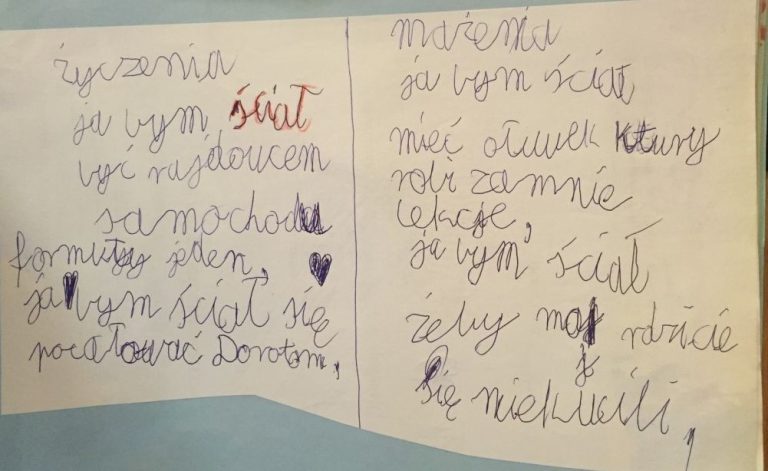 życzenia
ja bym ściał
być rajdowcem
samochodu
formuły jeden.
ja bym ściał się
pocałować Dorotom,
mażenia
ja bym ściał
mieć ołuwek ktury
robi zamnie
lekcje,
ja bym ściał
żeby moj rdzicie
się niekucili,